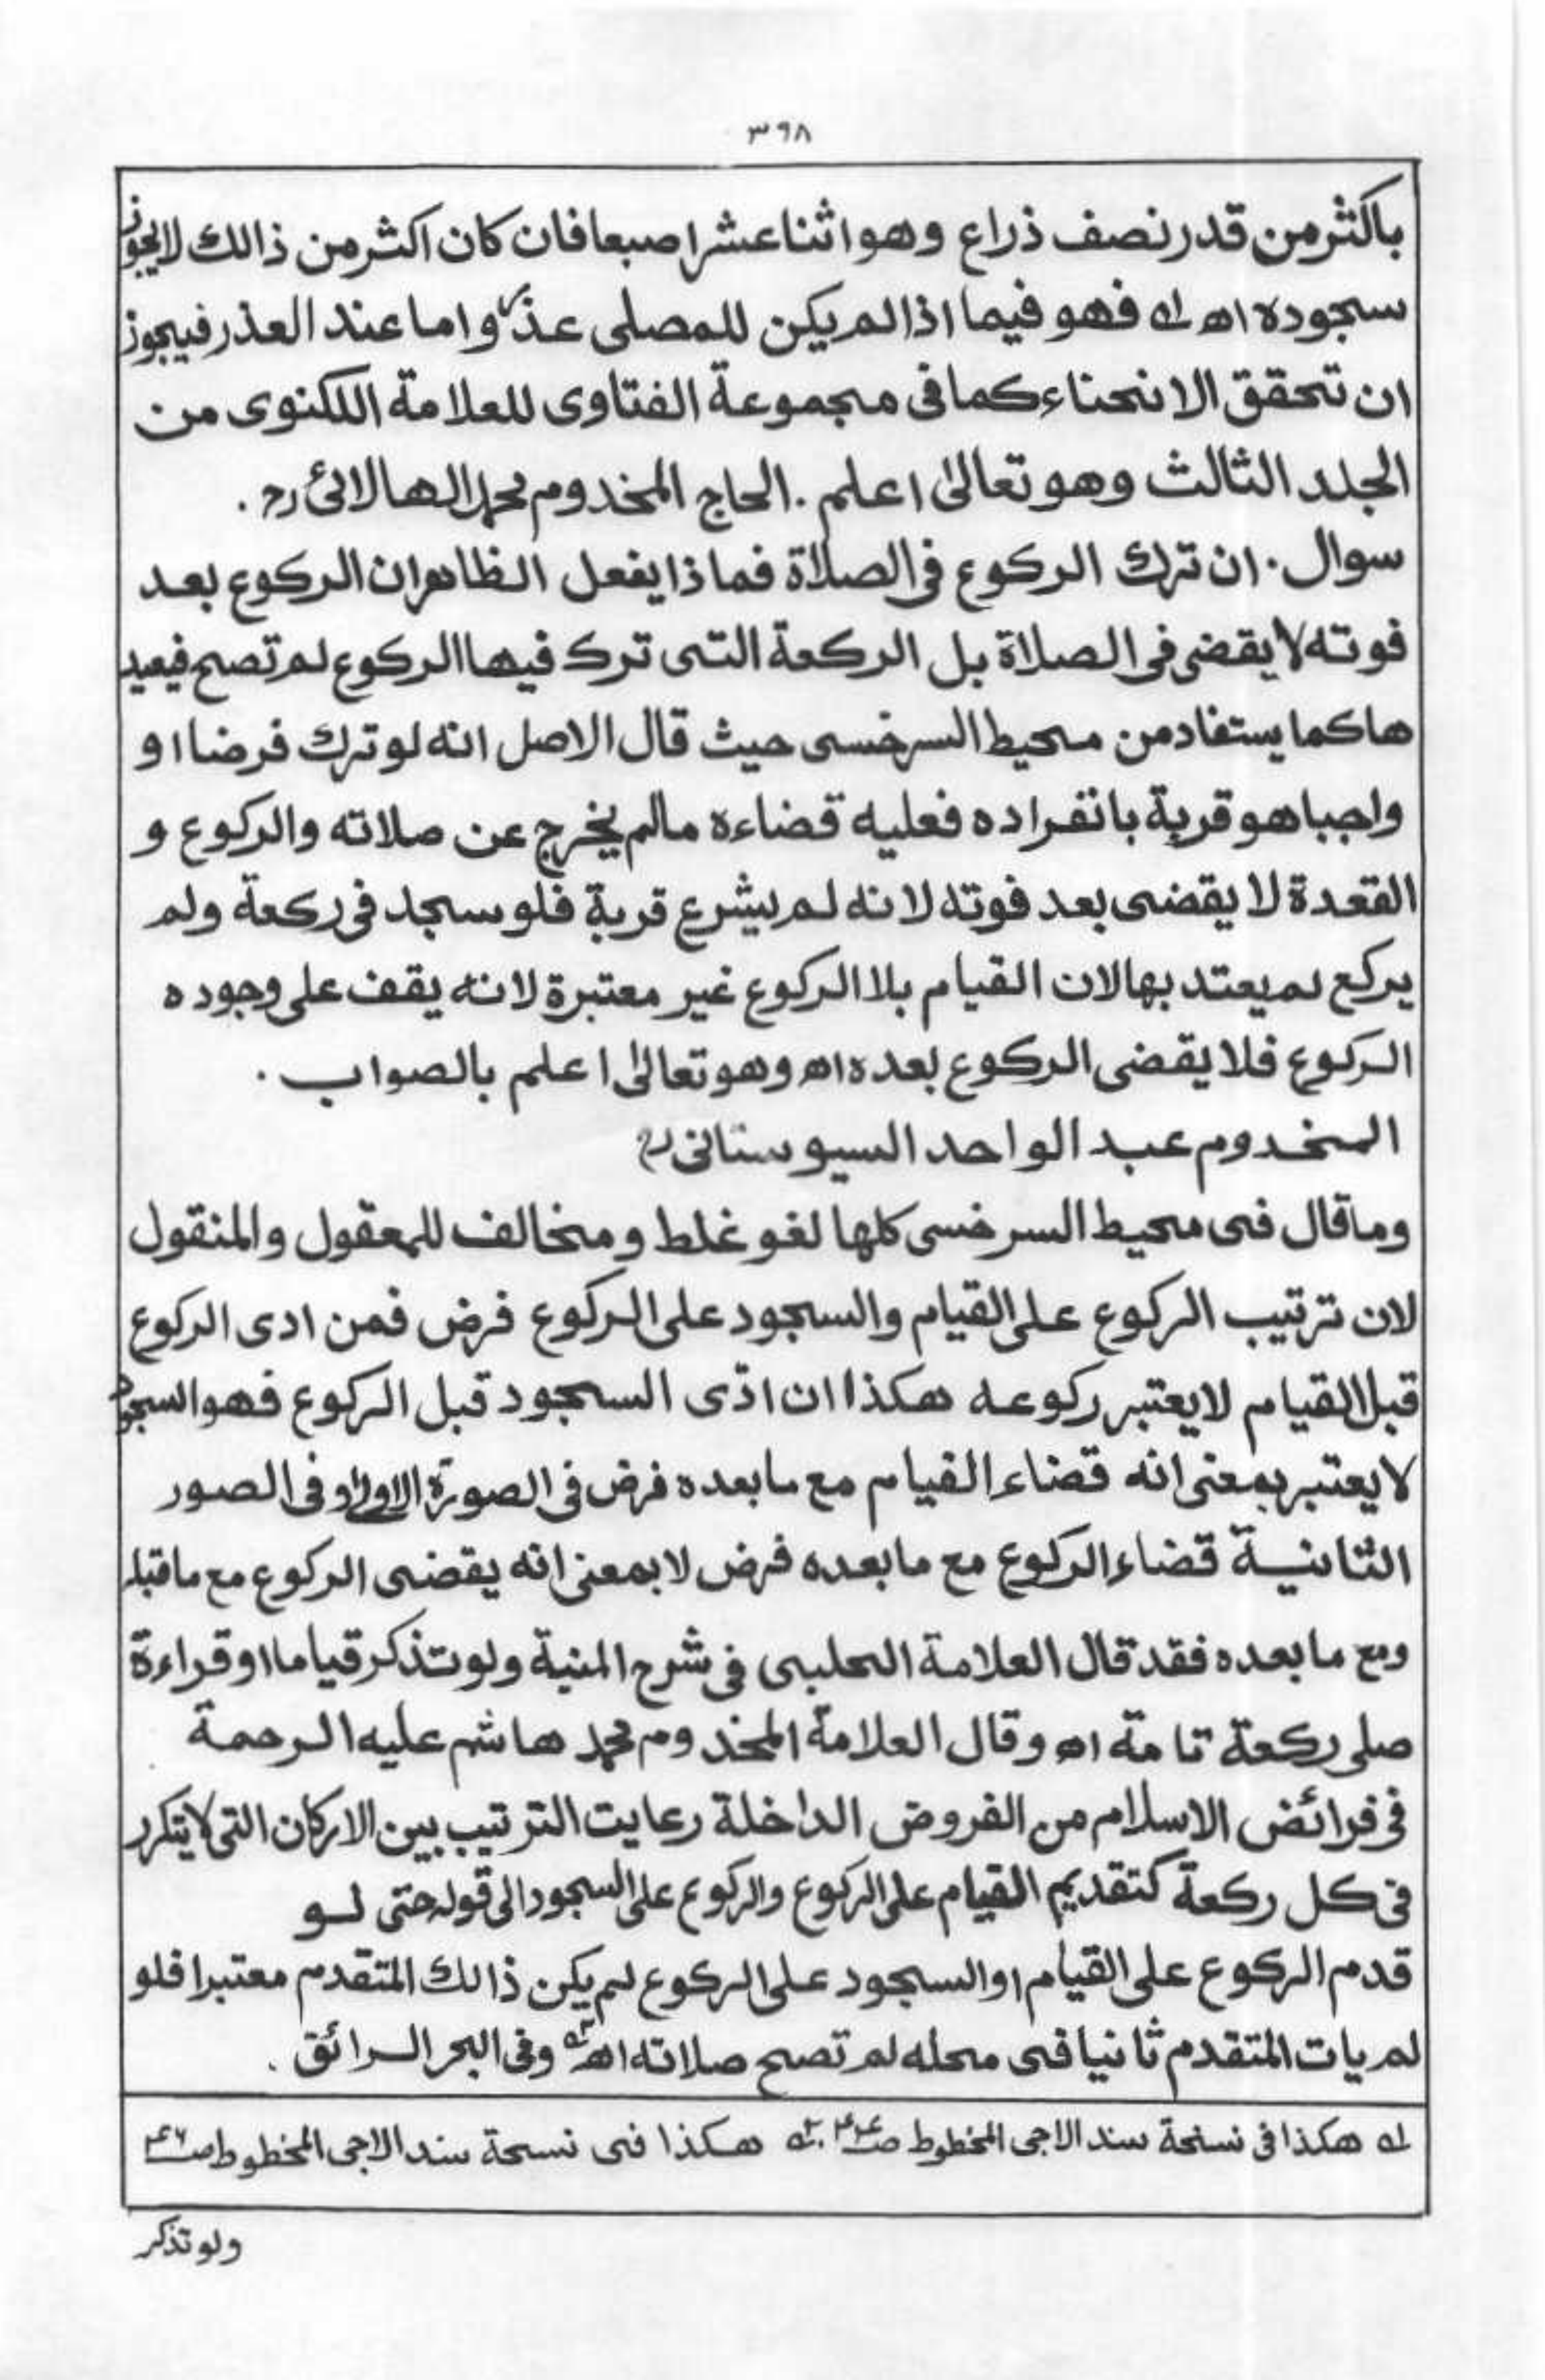 ٣٩٨
باكثر من قدر نصف ذراع وهو اثنا عشر اصبعا فان كان اكثر من ذالك لايجوز
سجوده اھ لہ فهو فيما اذا لم يكن للمصلى عذر واما عند العذر فيجوز
ان تحقق الانحناء كما فى مجموعة الفتاوى للعلامة اللكنوى من
الجلد الثالث وهو تعالىٰ اعلم . الحاج المخدوم محمد الهالائى رح .
سوال . ان ترك الركوع فى الصلاة فماذا يفعل الظاهر ان الركوع بعد
فوته لا يقضى فى الصلاة بل الركعة التى ترك فيها الركوع لم تصح فيعيد
ها كما يستفاد من محيط السرخسى حيث قال الاصل انه لو ترك فرضا او
واجبا هو قربة بانفراده فعليه قضاءه مالم يخرج عن صلاته والركوع و
القعدة لا يقضى بعد فوته لانه لم يشرع قربة فلو سجد فى ركعة ولم
يركع لم يعتد بها لان القيام بلا الركوع غير معتبرة لانه يقف على وجوده
الركوع فلا يقضى الركوع بعده اھ وهو تعالىٰ اعلم بالصواب .
المخدوم عبد الواحد السيوستانى رح
وما قال فى محيط السرخسى كلها لغو غلط و مخالف للمعقول والمنقول
لان ترتيب الركوع على القيام والسجود على الركوع فرض فمن ادى الركوع
قبل القيام لا يعتبر ركوعه هكذا ان ادّى السجود قبل الركوع فهو السجود
لا يعتبر بمعنى انه قضاء القيام مع مابعده فرض فى الصورة الاولىٰ و فى الصور
الثانية قضاء الركوع مع مابعده فرض لا بمعنى انه يقضى الركوع مع ماقبله
ومع مابعده فقد قال العلامة الحلبى فى شرح المنية ولو تذكر قياما او قراءة
صلى ركعة تامة اھ وقال العلامة المخدوم محمد هاشم عليه الرحمة
فى فرائض الاسلام من الفروض الداخلة رعايت الترتيب بين الاركان التى لا يتكرر
فى كل ركعة كتقديم القيام على الركوع والركوع على السجود الى قوله حتى لو
قدم الركوع على القيام او السجود على الركوع لم يكن ذالك المتقدم معتبرا فلو
لم يات المتقدم ثانيا فى محله لم تصح صلاته اھ ٢ہ وفى البحر الرائق .
لہ هكذا فى نسخة سند الاجى المخطوط صـ . ٢ہ هكذا فى نسخة سند الاجى المخطوط صـ
ولو تذكر